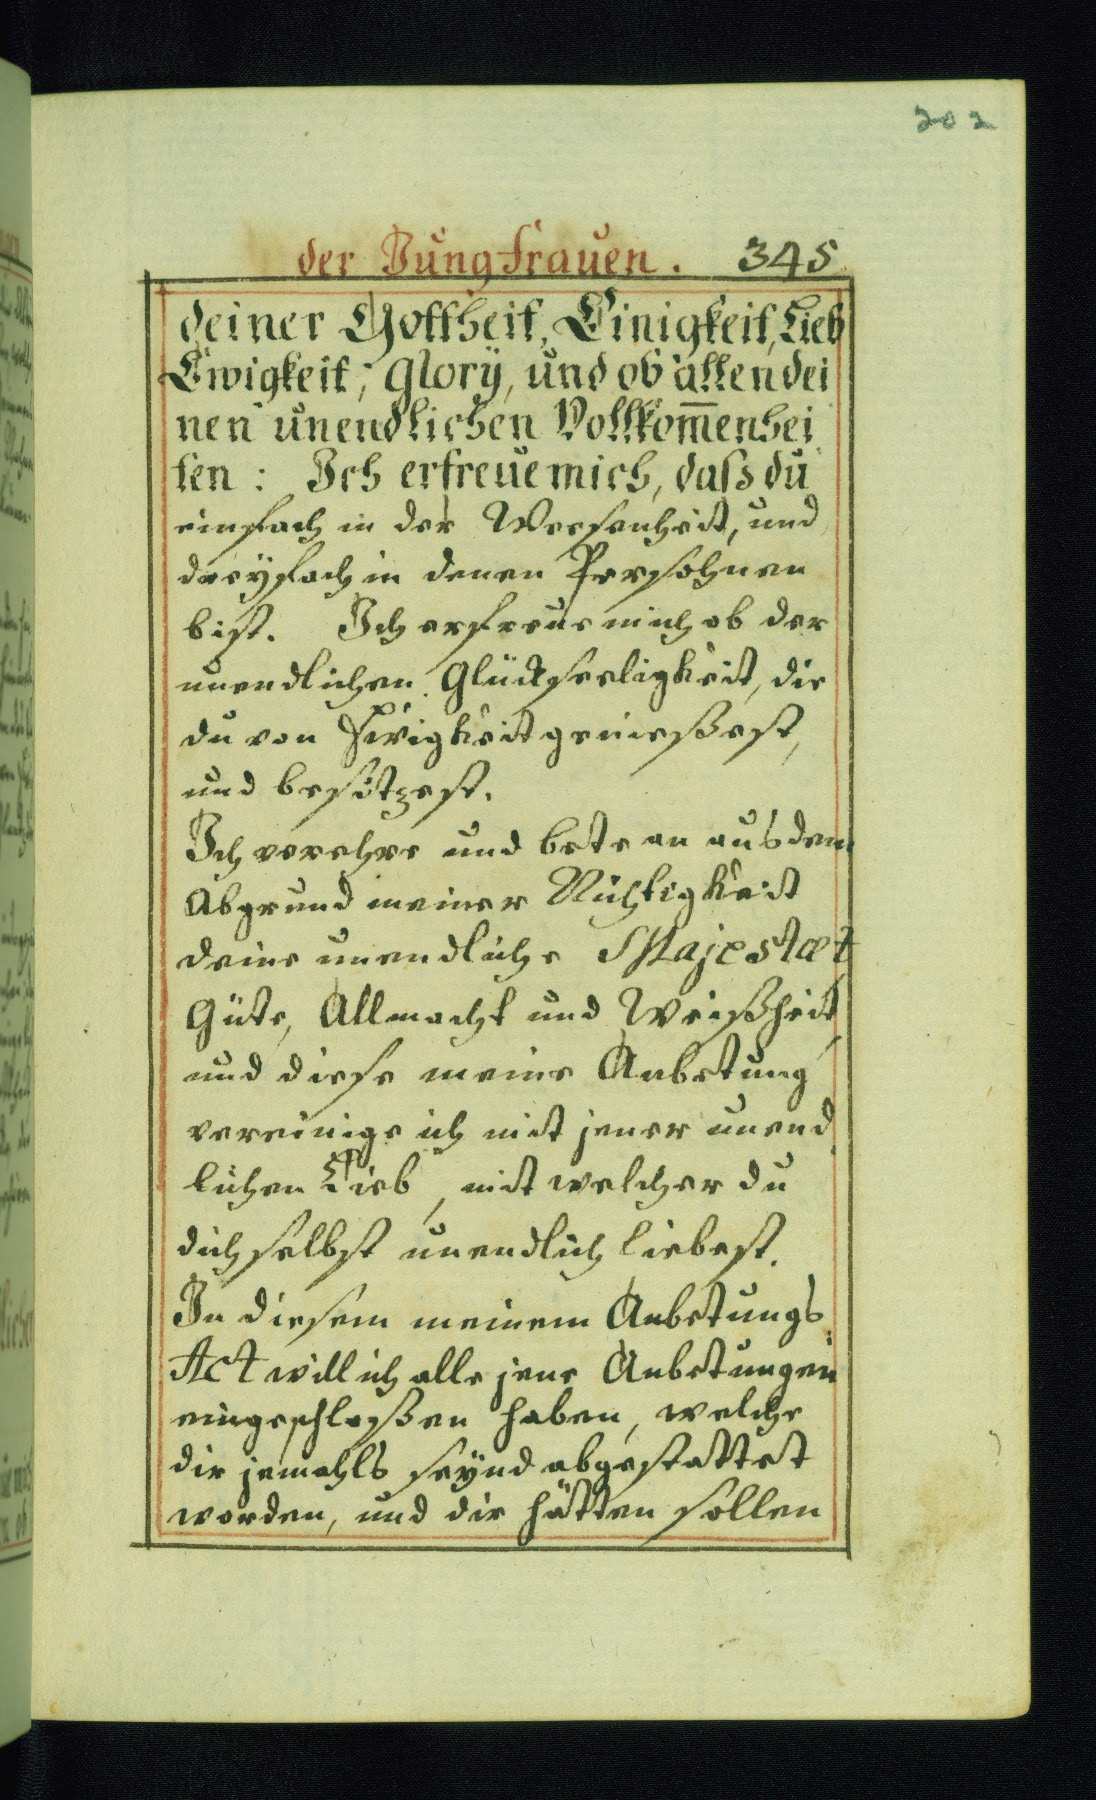 202
der Jungfrauen. 345
deiner Gottheit, Einigkeit, Lieb
Ewigkeit, glorÿ, und ob allen dei
nen unendlichen Vollkom̅enhei
ten: Ich erfreue mich, dass du
einfach in der Weesenheit, und
dreÿfach in denen Persohnen
bist. Ich erfreue mich ob der
unendlichen Glückseeligkeit, die
du von Ewigkeit genießest,
und besitzest.
Ich verehre und bete an aus dem
Abgrund meiner Nichtigkeit
deine unendliche Majestæt
Güte, Allmacht und Weißheit,
und diese meine Anbetung
vereinige ich mit jener unend
lichen Lieb, mit welcher du
dich selbst unendlich liebest.
In diesem meinem Anbetungs
Act will ich alle jene Anbetungen
eingeschloßen haben, welche
dir jemahls seÿnd abgestattet
worden, und dir hätten sollen